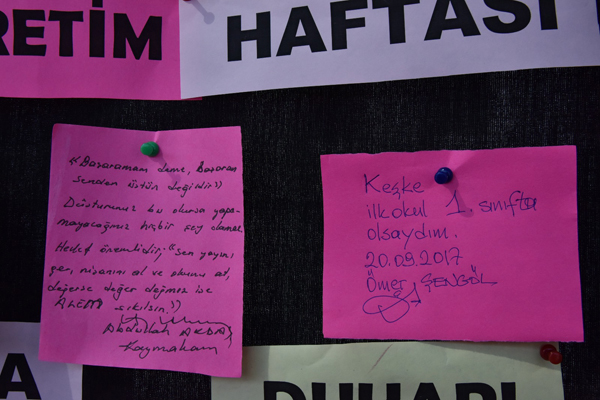 RETİM
HAFTASI
"Başaramam deme, Başaran
senden üstün değildir"
Düsturumuz bu olursa yapa-
mayacağımız hiçbir şey olamaz.
Hedef önemlidir; "sen yayını
ger, nişanını al ve okunu at,
değerse değer değmez ise
ALEM sıkılsın."
Abdullah AKDAŞ
Kaymakam
Keşke
ilkokul 1. sınıfta
olsaydım.
20.09.2017
Ömer ŞENGÖL
A
DUVARI